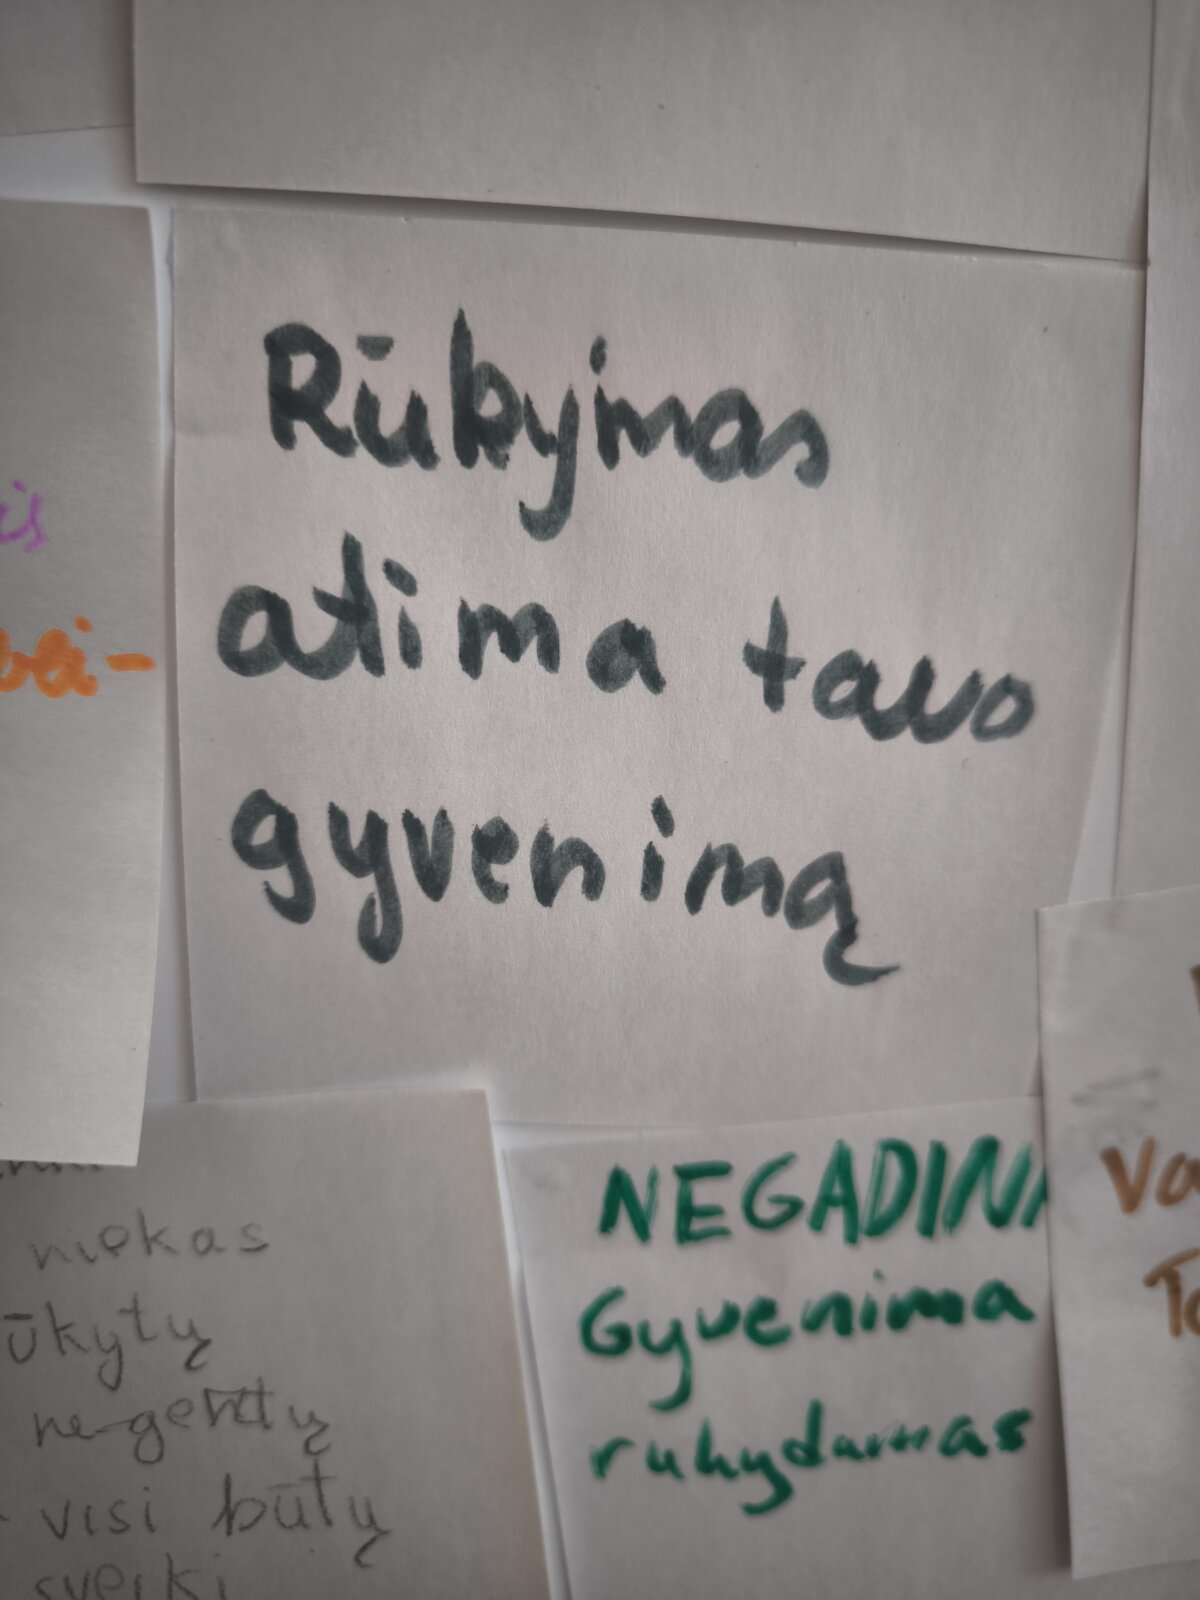 Rūkymas
atima tavo
gyvenimą
niekas
ūkytų
ne gertų
visi būtų
sveiki
NEGADINK
Gyvenima
rukydamas